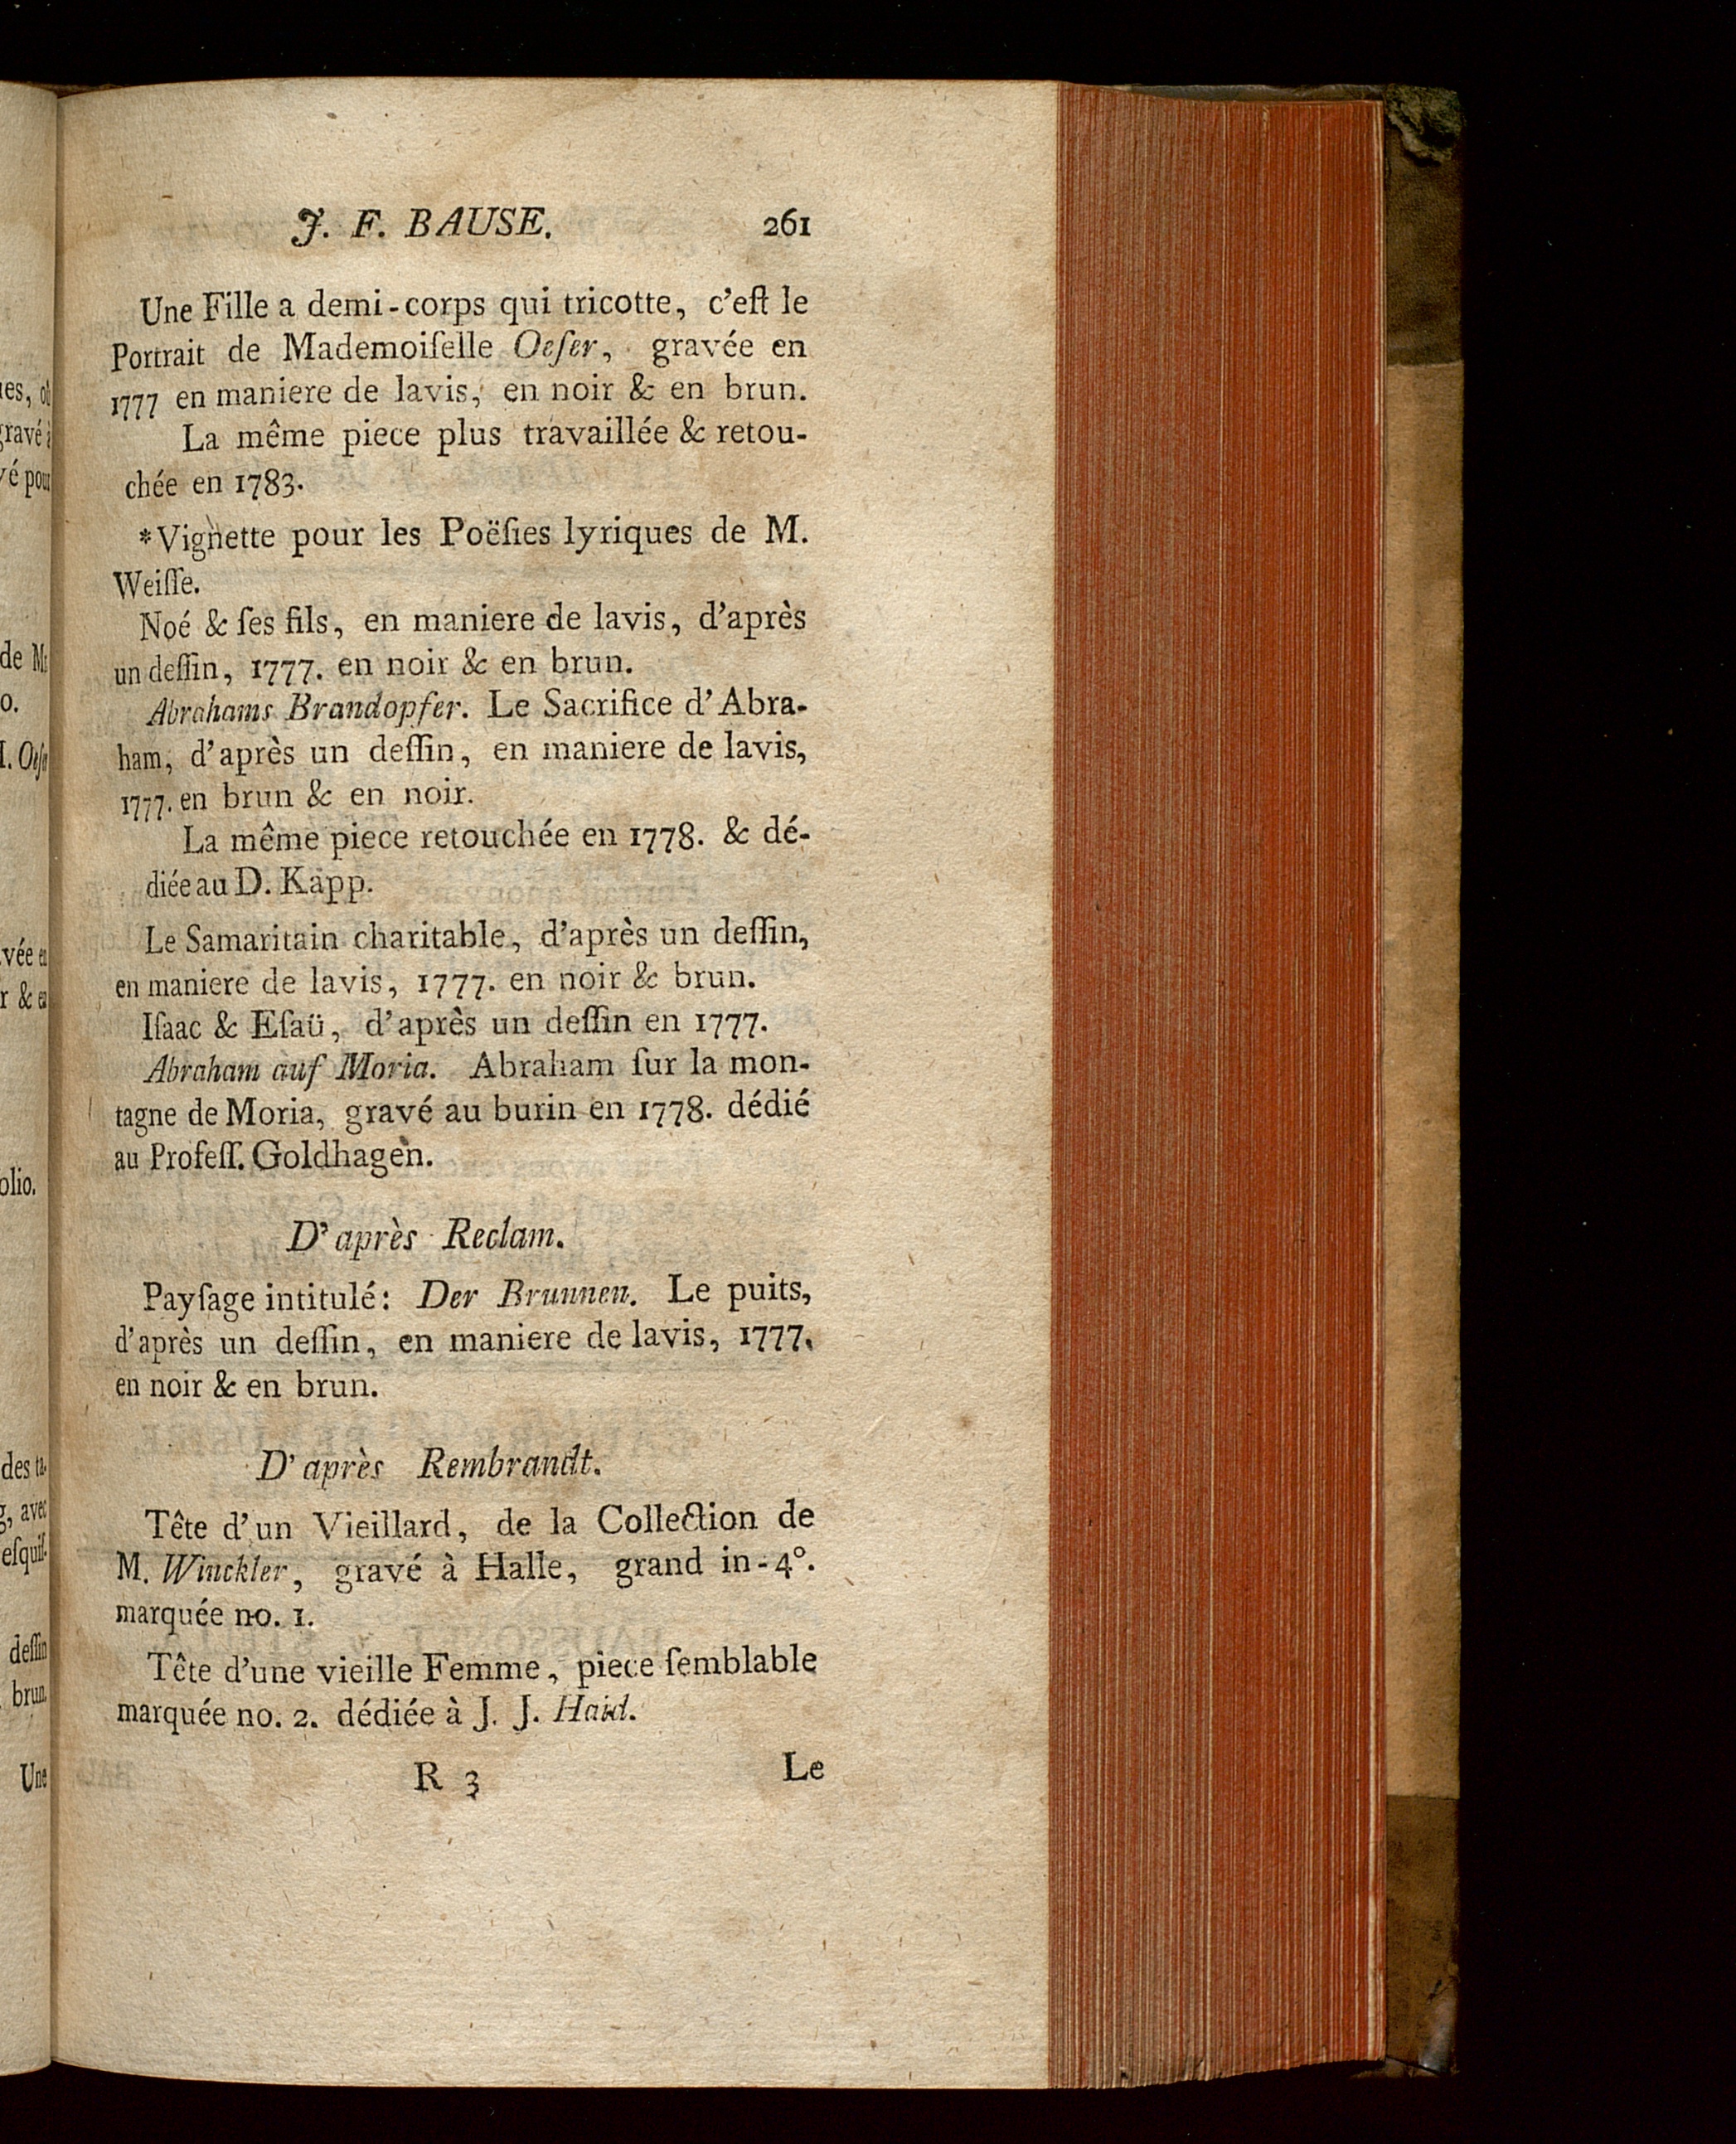 J. F. BAUSE. 261
Une Fille a demi-corps qui tricotte, c'eſt le
Portrait de Mademoiſelle Oeſer, gravée en
1777 en maniere de lavis, en noir & en brun.
La même piece plus travaillée & retou-
chée en 1783.
*Vignette pour les Poëſies lyriques de M.
Weiſſe.
Noé & ſes fils, en maniere de lavis, d'après
un deſſin, 1777. en noir & en brun.
Abrahams Brandopfer. Le Sacrifice d'Abra-
ham, d'après un deſſin, en maniere de lavis,
1777. en brun & en noir.
La même piece retouchée en 1778. & dé-
diée au D. Kapp.
Le Samaritain charitable, d'après un deſſin,
en maniere de lavis, 1777. en noir & brun.
Iſaac & Eſaü, d'après un deſſin en 1777.
Abraham auf Moria. Abraham ſur la mon-
tagne de Moria, gravé au burin en 1778. dédié
au Profeſſ. Goldhagen.
D'après Reclam.
Payſage intitulé: Der Brunnen. Le puits,
d'après un deſſin, en maniere de lavis, 1777.
en noir & en brun.
D'après Rembrandt.
Tête d'un Vieillard, de la Collection de
M. Winckler, gravé à Halle, grand in-4°.
marquée no. 1.
Tête d'une vieille Femme, piece ſemblable
marquée no. 2. dédiée à J. J. Haid.
R 3 Le